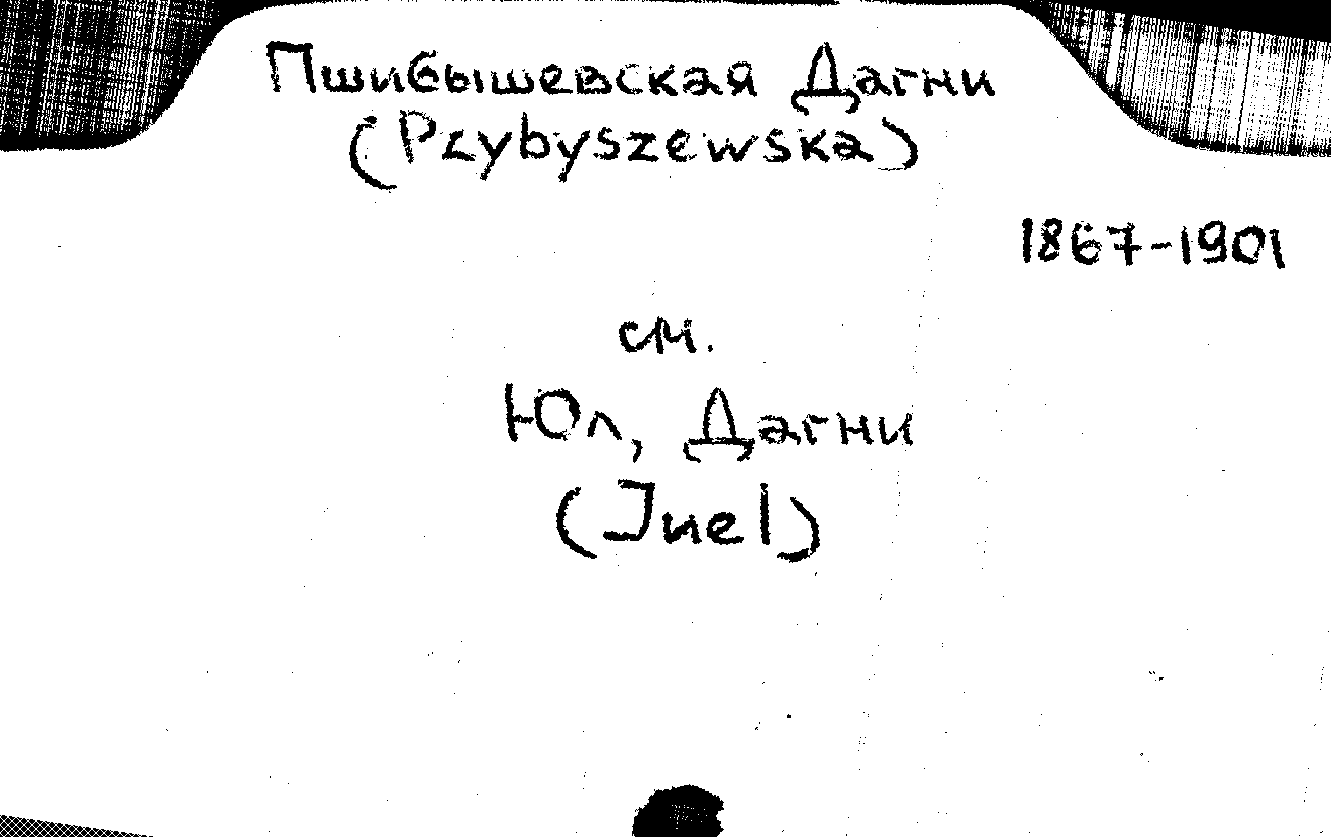 Пшибышевская Дагни
(Przybyszewska)
1867-1901
см.
Юл, Дагни
(Juel)